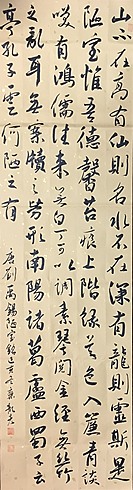 山不在高有仙則名水不在深有龍則靈斯是
陋室惟吾德馨苔痕上階綠草色入簾青談
咲有鴻儒往來無白丁可以調素琴閱金經無絲竹
之亂耳無案牘之勞形南陽諸葛廬西蜀子云
亭孔子云何陋之有
唐劉禹錫陋室銘